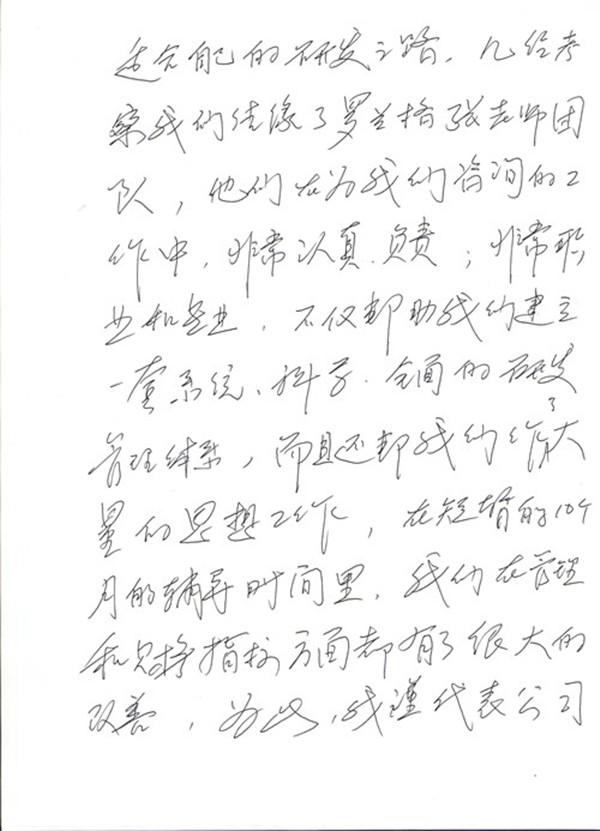 适合自己的研发之路. 几经考
察我们结缘了罗兰格张老师团
队，他们在为我们咨询的工
作中, 非常认真.负责；非常职
业和专业. 不仅帮助我们建立
一套系统、科学.全面的研发
管理体系，而且还帮我们作了大
量的思想工作，在短暂的10个
月的辅导时间里. 我们在管理
和财务指标方面都有了很大的
改善，为此，我谨代表公司